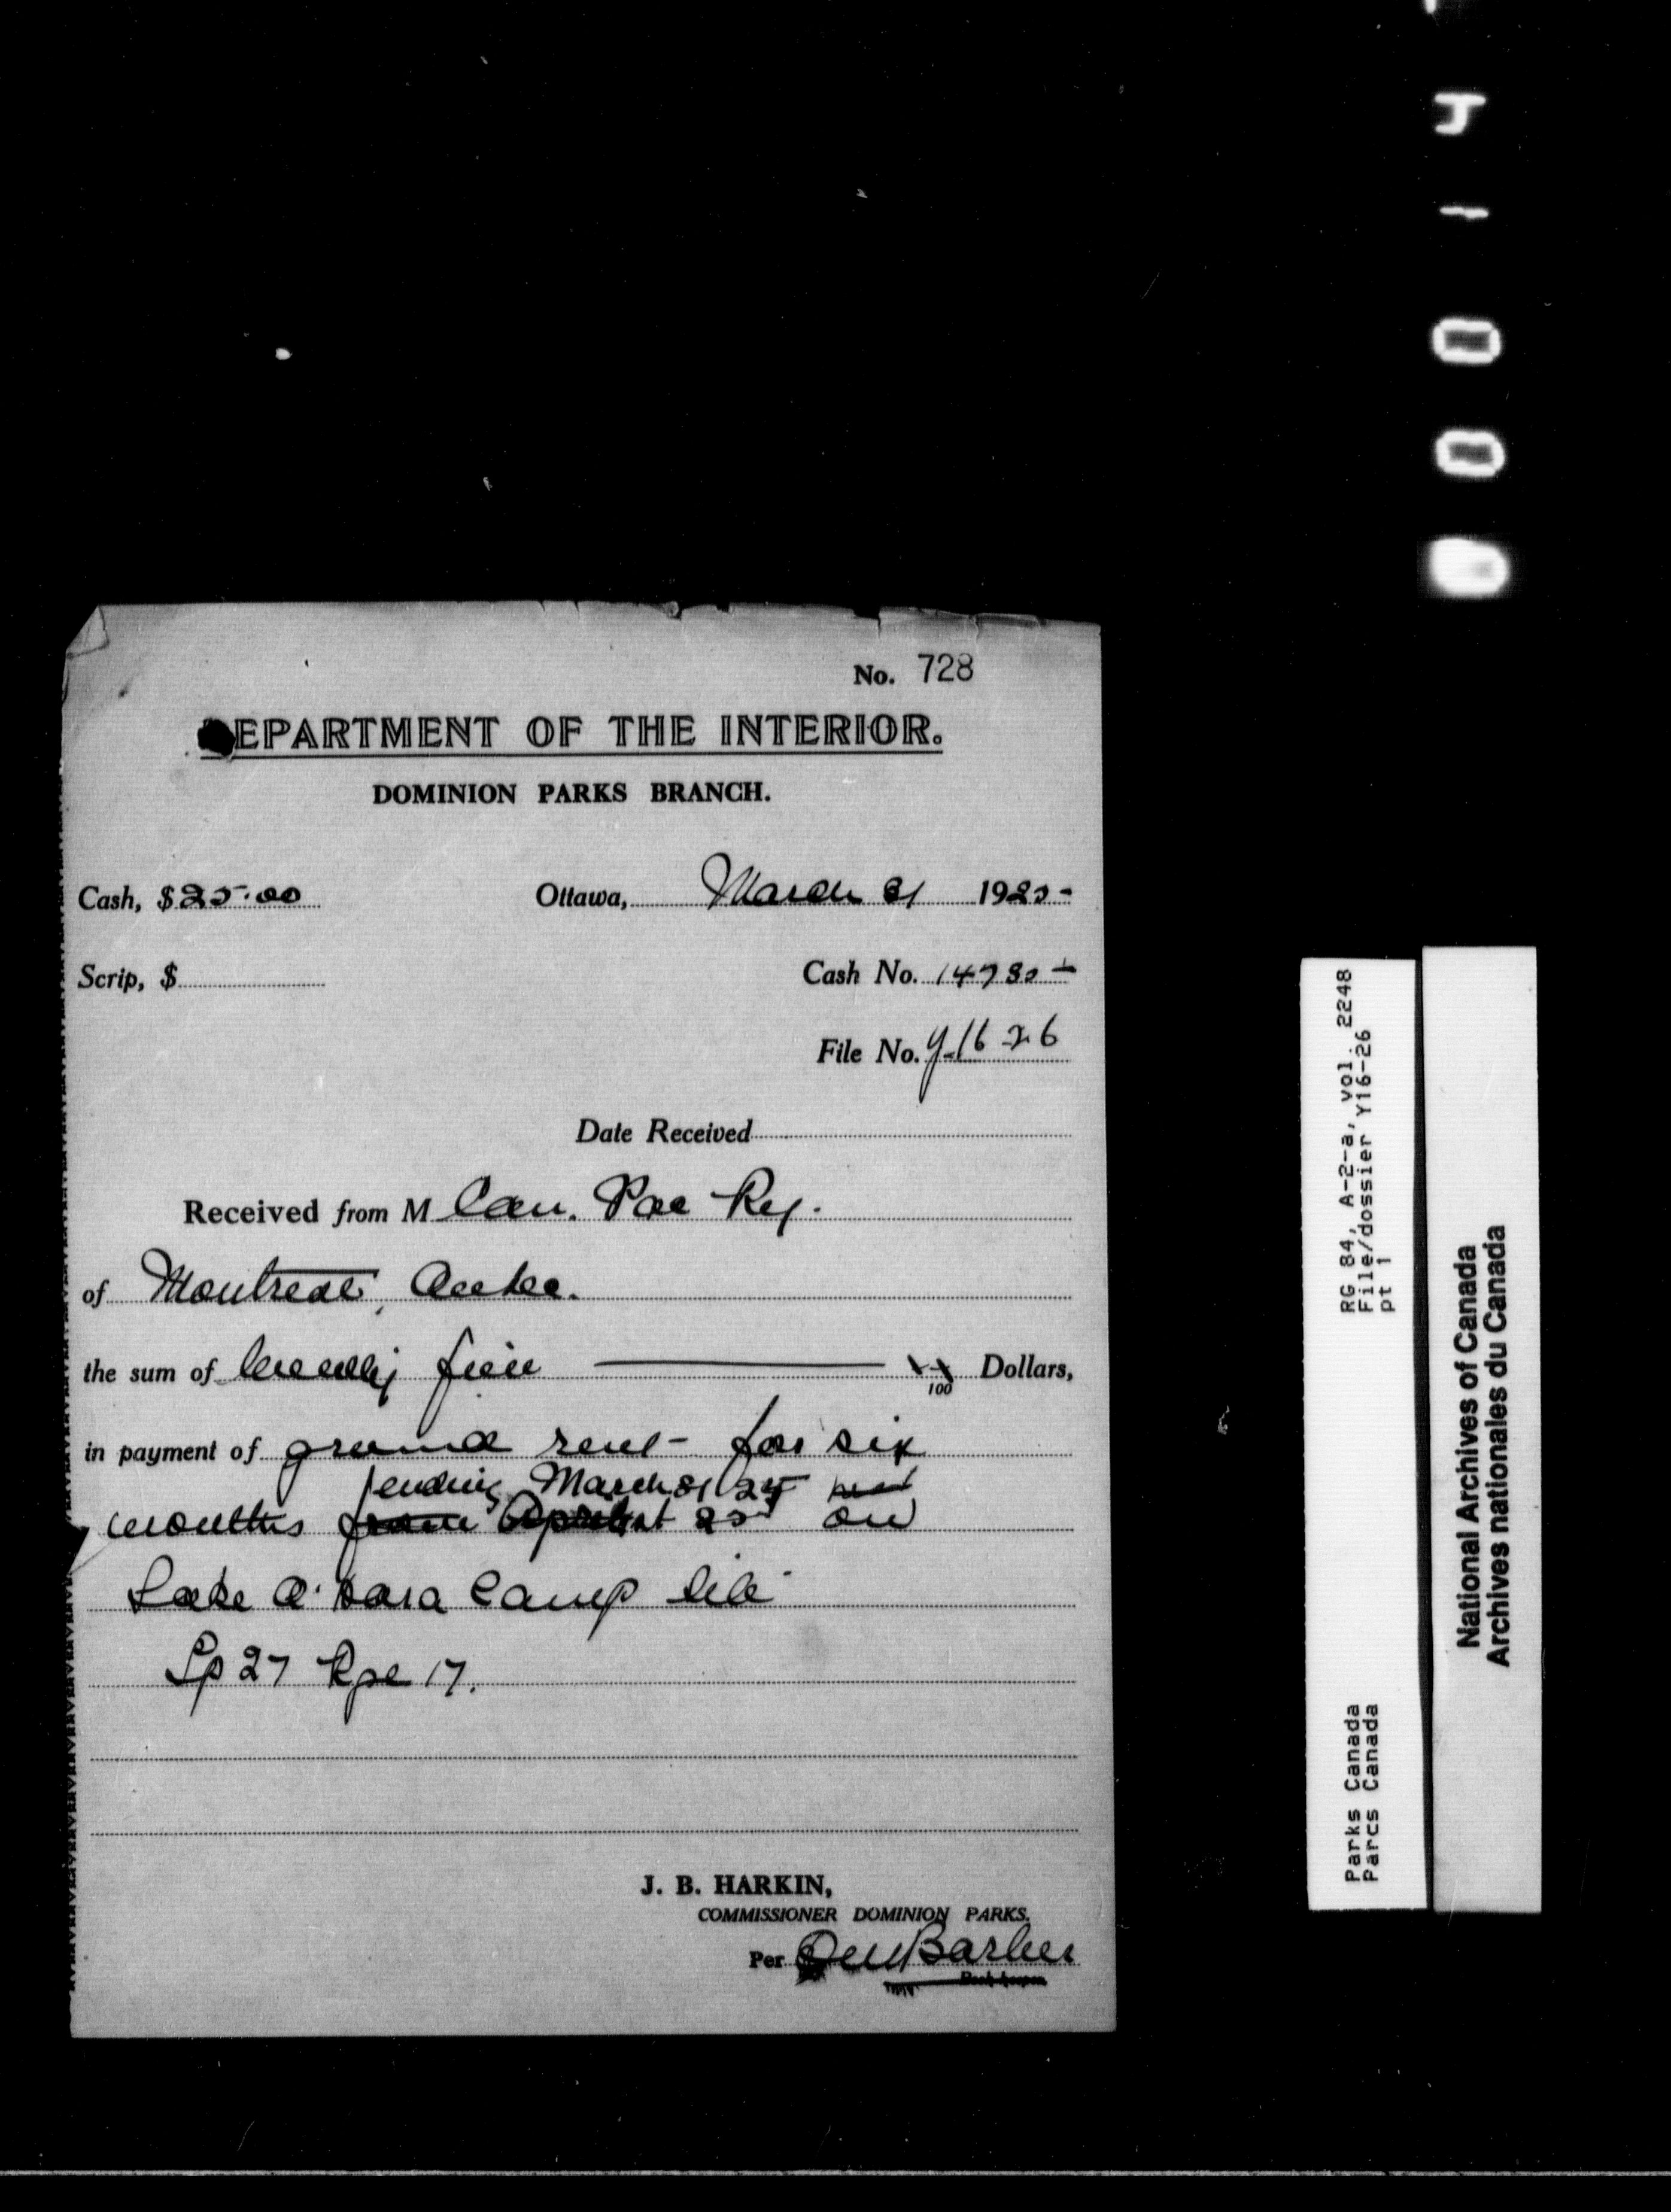 No. 728
DEPARTMENT OF THE INTERIOR.
DOMINION PARKS BRANCH.
Cash, $25.00 Ottawa, March 31 1925
Scrip, $
Cash No. 14785
File No. Y-16-26
Date Received
Received from M Can. Pac Ry.
of Montreal, Quebec.
the sum of twenty five xx/100 Dollars,
in payment of ground rent for six
ending March 31/25
months from April 1st 25 on
Lake O'Hara Camp site
Tp 27 Rge 17.
J. B. HARKIN,
COMMISSIONER DOMINION PARKS.
Per Barber
RG 84, A-2-a, vol. 2248
File/dossier Y16-26
pt 1
Parks Canada
Parcs Canada
National Archives of Canada
Archives nationales du Canada